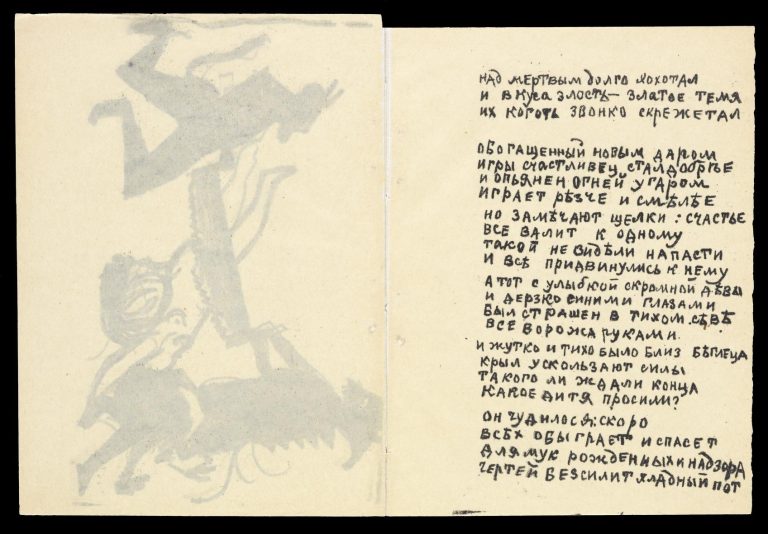 НАД МЕРТВЫМ ДОЛГО ХОХОТАЛ
И ВКУСА ЗЛОСТЬ – ЗЛАТОЕ ТЕМЯ
ИХ КОГОТЬ ЗВОНКО СКРЕЖЕТАЛ
ОБОГАЩЕННЫЙ НОВЫМ ДАРОМ
ИГРЫ СЧАСТЛИВЕЦ СТАЛ ДОБРѢЕ
И ОПЬЯНЕН ОГНЕЙ УГАРОМ
ИГРАЕТ РѢЗЧЕ И СМѢЛѢЕ
НО ЗАМѢЧАЮТ ЩЕЛКИ: СЧАСТЬЕ
ВСЕ ВАЛИТ К ОДНОМУ
ТАКОЙ НЕ ВИДѢЛИ НАПАСТИ
И ВСѢ ПРИДВИНУЛИСЬ К НЕМУ
А ТОТ С УЛЫБКОЙ СКРОМНОЙ ДѢВЫ
И ДЕРЗКО СИНИМИ ГЛАЗАМИ
БЫЛ СТРАШЕН В ТИХОМ СѢВѢ
ВСЕ ВОРОЖА РУКАМИ.
И ЖУТКО И ТИХО БЫЛО БЛИЗ БѢГЛЕЦА
КРЫЛ УСКОЛЬЗАЮТ СИЛЫ
ТАКОГО ЛИ ЖДАЛИ КОНЦА
КАКОЕ ДИТЯ ПРОСИЛИ?
ОН ЧУДИЛОСЯ: СКОРО
ВСѢХ ОБЫГРАЕТ И СПАСЕТ
ДЛЯ МУК РОЖДЕННЫХ И НАДЗОРА
ЧЕРТЕЙ БЕЗСИЛИТ ХЛАДНЫЙ ПОТ